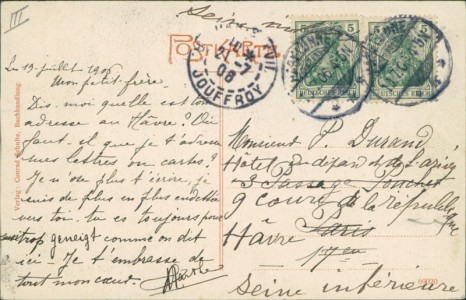 III
Seine
POSTKARTE
5 5
DEUTSCHES REICH
JOUFFROY
21 -7
06
Le 19 juillet 1906
Mon petit frère.
Dis-moi quelle est ton
adresse au Hâvre? Où
faut-il que je t'adresse
mes lettres ou cartes?
Je n'ose plus t'écrire, je
suis de plus en plus endetté
vers toi. tu es toujours pour
trop geneigt comme on dit
ici - Je t'embrasse de
tout mon cœur.
Monsieur P. Durand
Hôtel du dépard de Paris
3 Passage Pouchet
9 cours de la république
Hâvre Paris
17em
Seine inférieure
Verlag: Conrad Schulte, Buchhandlung.